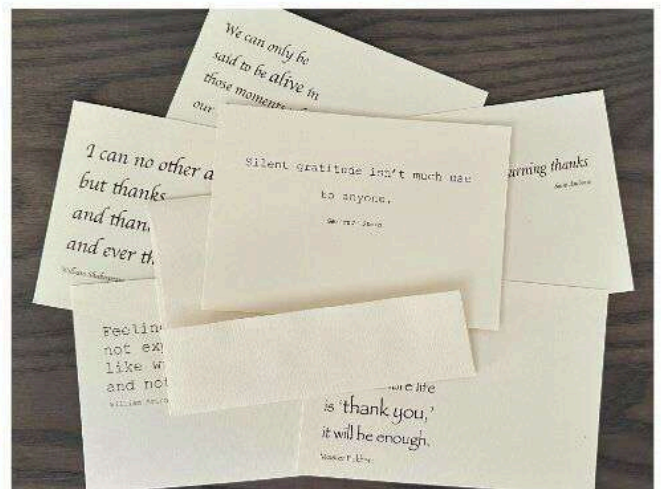 We can only be
said to be alive in
those moments
our
I can no other a
but thanks
and than
and ever th
William Shakespeare
Silent gratitude isn't much use
to anyone.
arning thanks
Feelin
not ex
like w
and not
William Arthur
life
is 'thank you,'
it will be enough.